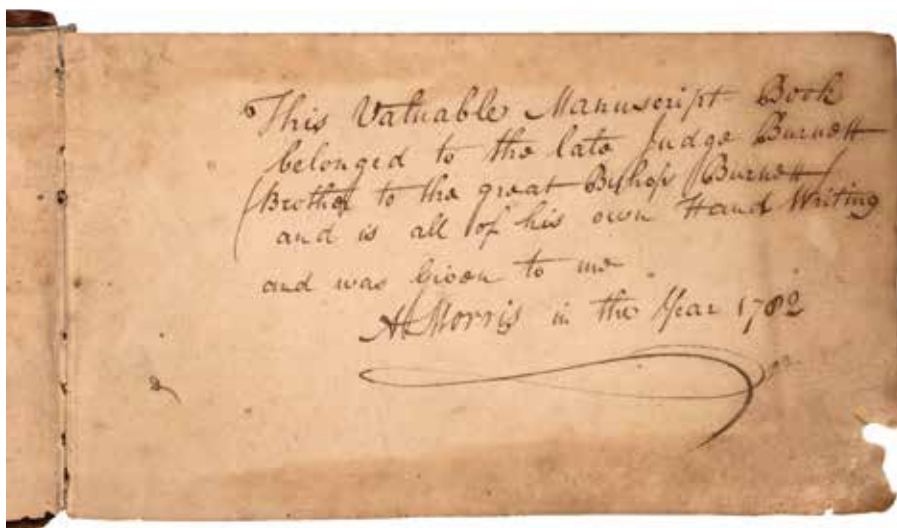 This Valuable Manuscript Book
belonged to the late Judge Burnett
(Brother to the great Bishop Burnett)
and is all of his own Hand Writing
and was Given to me
A Morris in the Year 1782